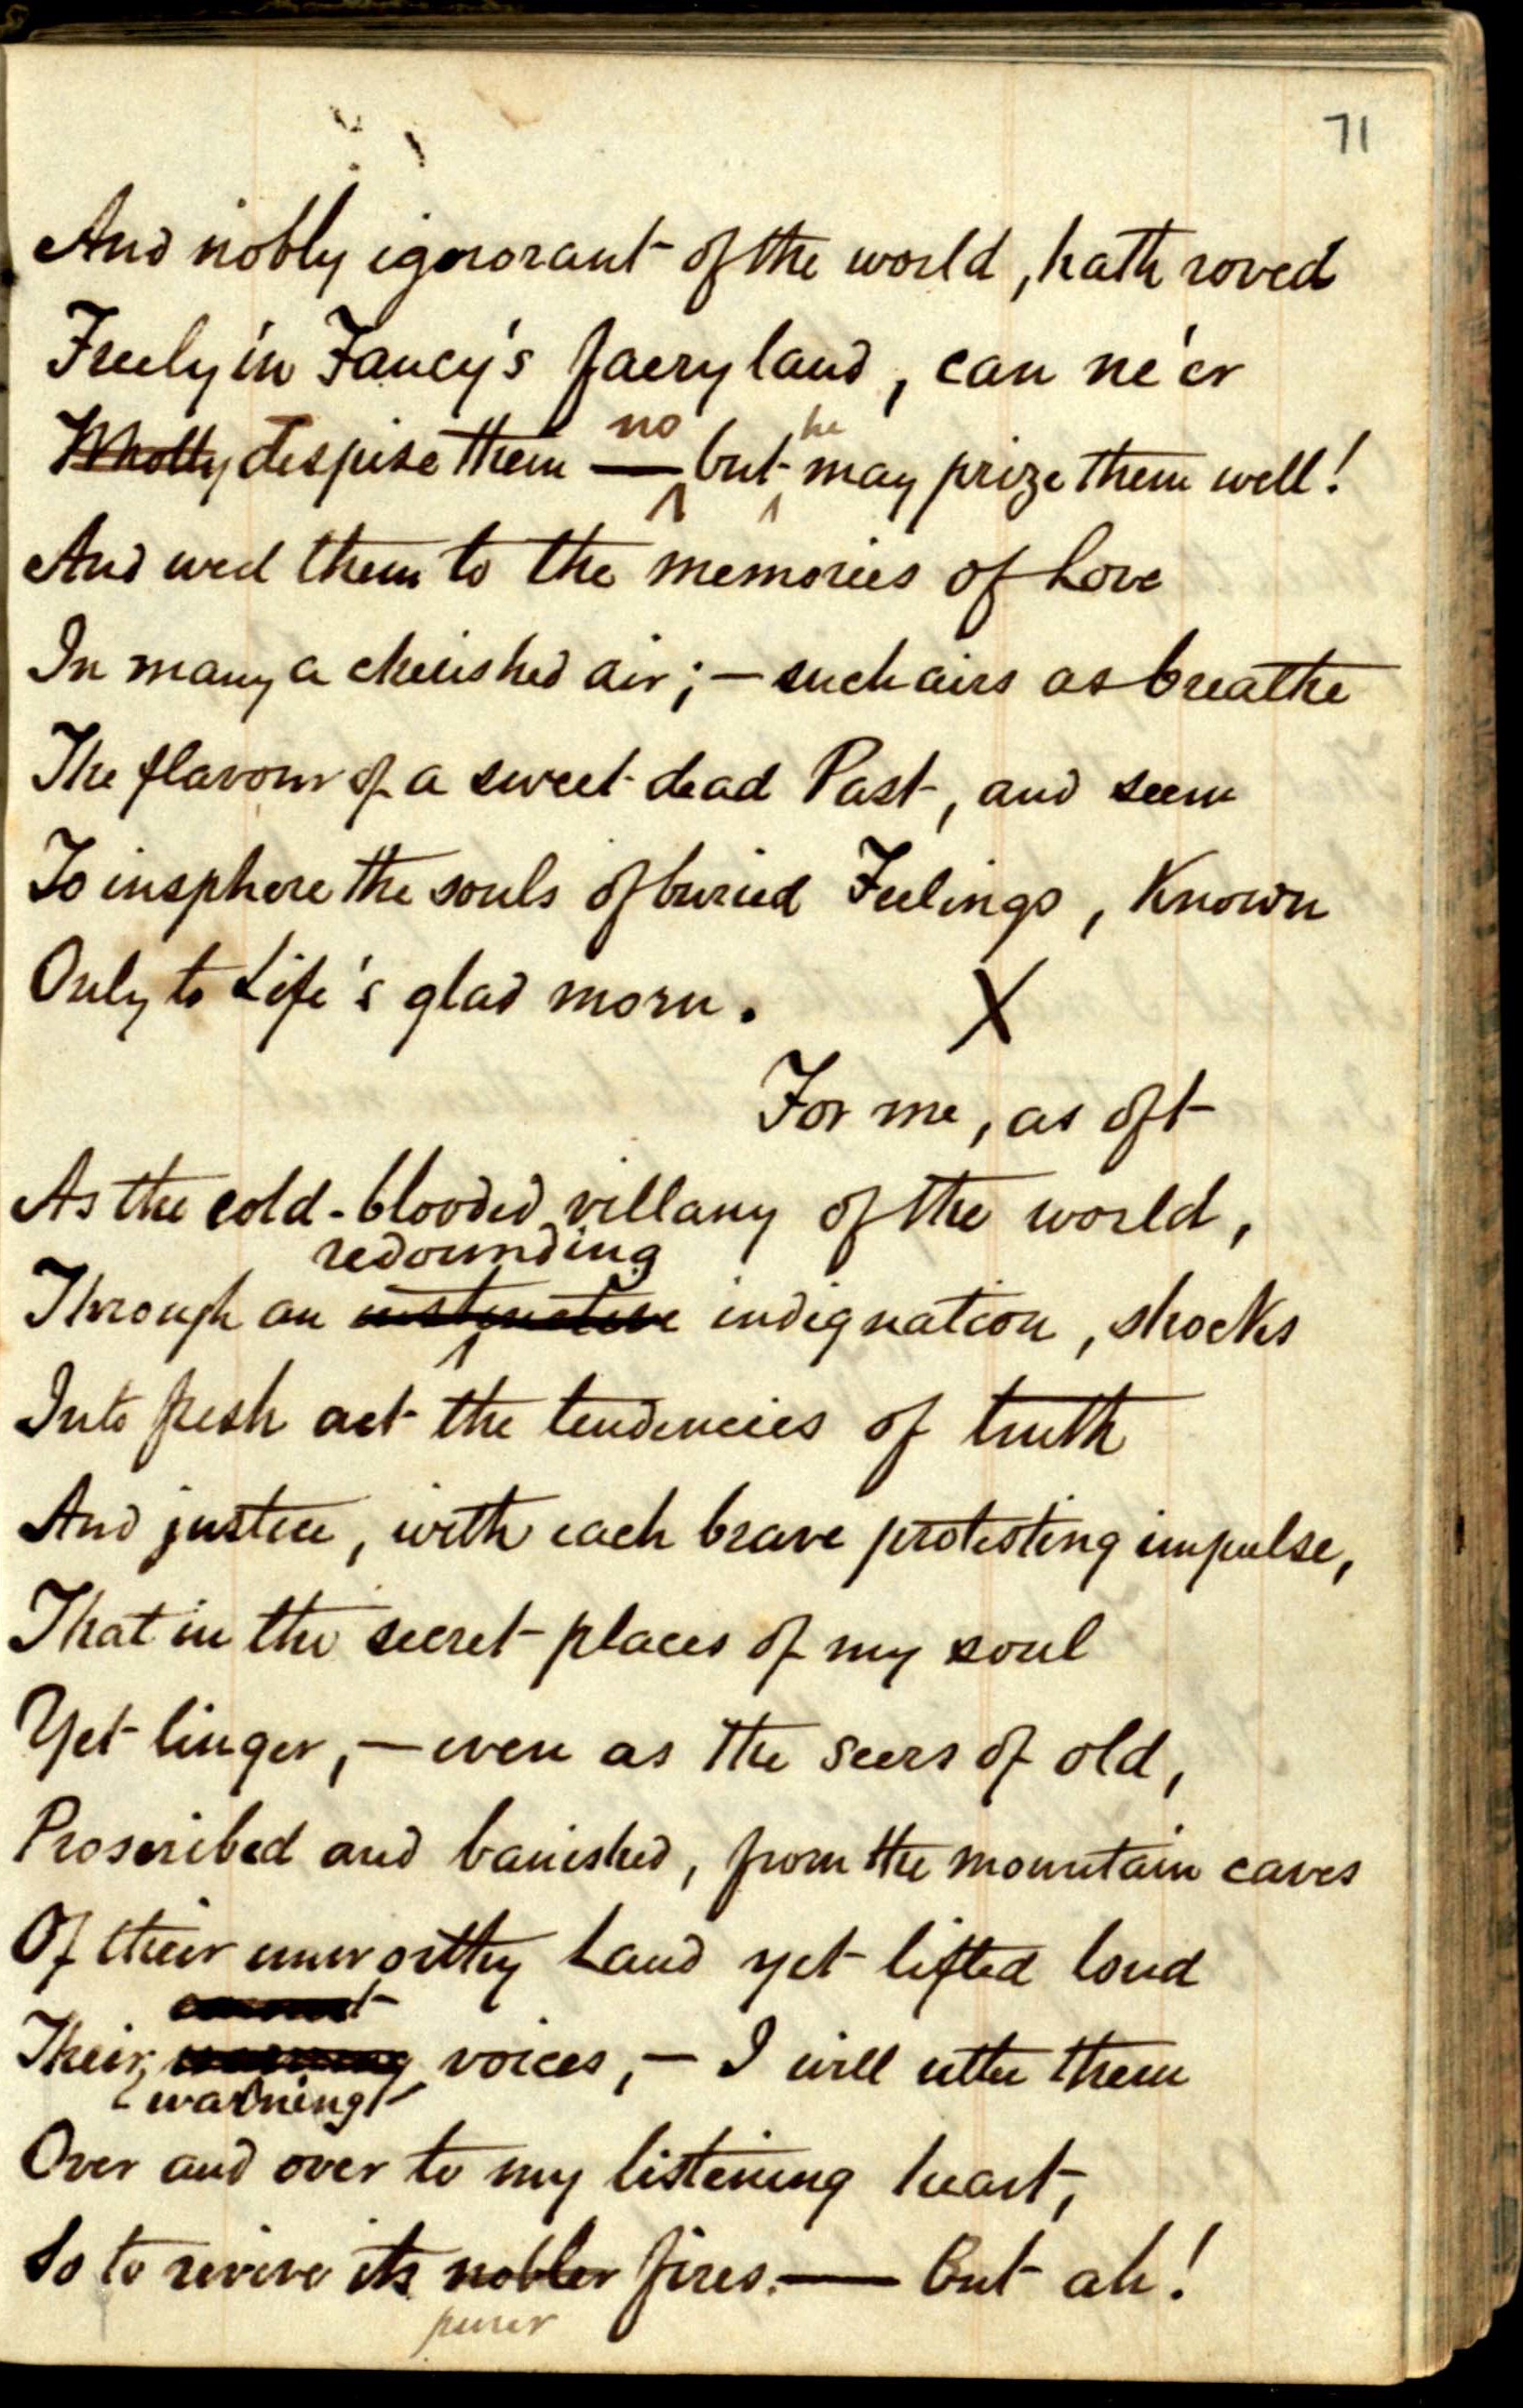 71
And nobly ignorant of the world, hath roved
Freely in Fancy's faery land, can ne'er
no he
Wholly despise them — but may prize them well!
And wed them to the memories of Love
In many a cherished air; — such airs as breathe
The flavour of a sweet dead Past, and seem
To insphere the souls of buried Feelings, Known
Only to Life's glad morn.
X
For me, as oft
As the cold-blooded villany of the world,
redounding
Through an instinctive indignation, shocks
Into fresh act the tendencies of truth
And justice, with each brave protesting impulse,
That in the secret places of my soul
Yet linger, — even as the seers of old,
Proscribed and banished, from the mountain caves
Of their unworthy Land yet lifted loud
Their warning voices, — I will utter them
warning
Over and over to my listening heart,
So to revive its nobler fires. — But ah!
purer